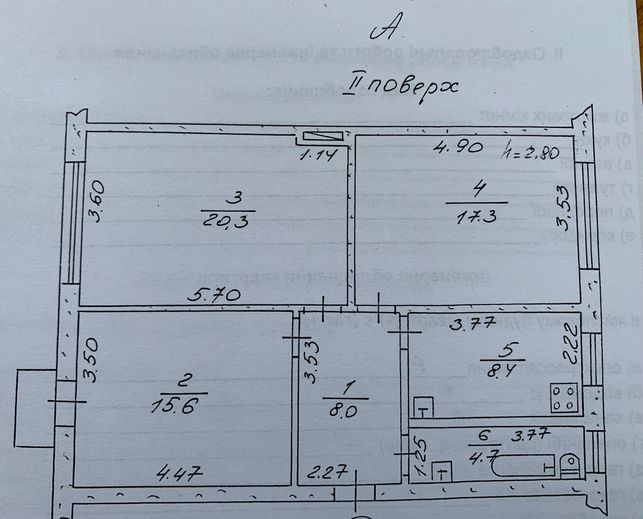 А
II поверх
1.14
4.90
h=2.80
3.60
3
20,3
4
17.3
3,53
5.70
3.77
2.22
3.50
2
15.6
3.53
1
8.0
5
8.4
4.47
2.27
1.25
6
4.7
3.77